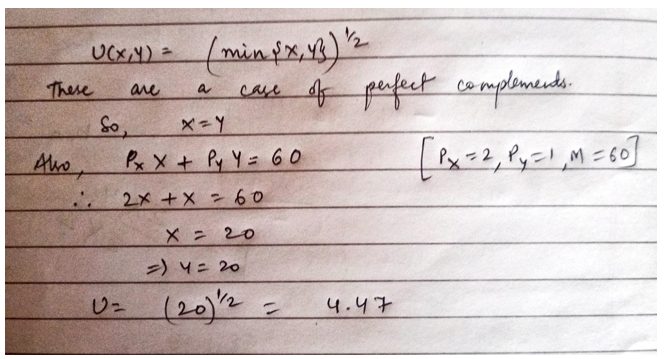 U(x,y) = (min{x, y})^1/2
These are a case of perfect complements.
So, x = y
Also, Px X + Py Y = 60 [Px = 2, Py = 1, M = 60]
∴ 2x + x = 60
x = 20
=) y = 20
U = (20)^1/2 = 4.47